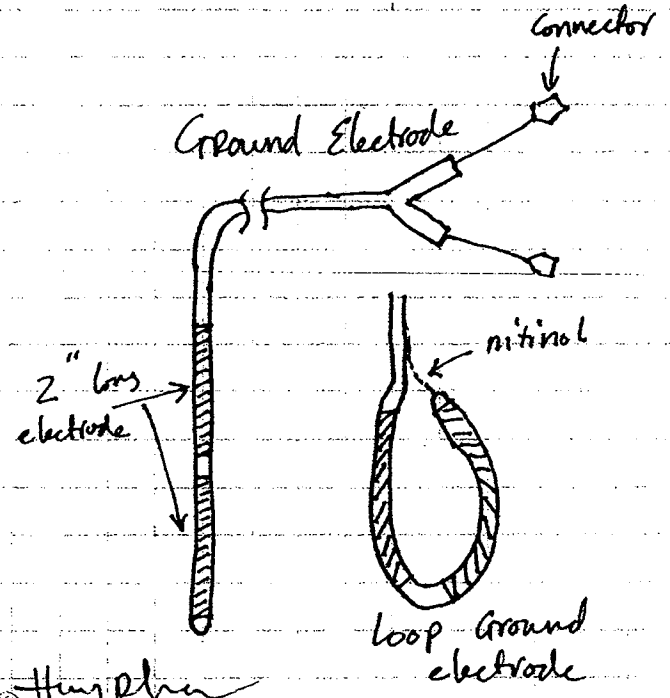 Connector
Ground Electrode
nitinol
2" long
electrode
Loop Ground
electrode